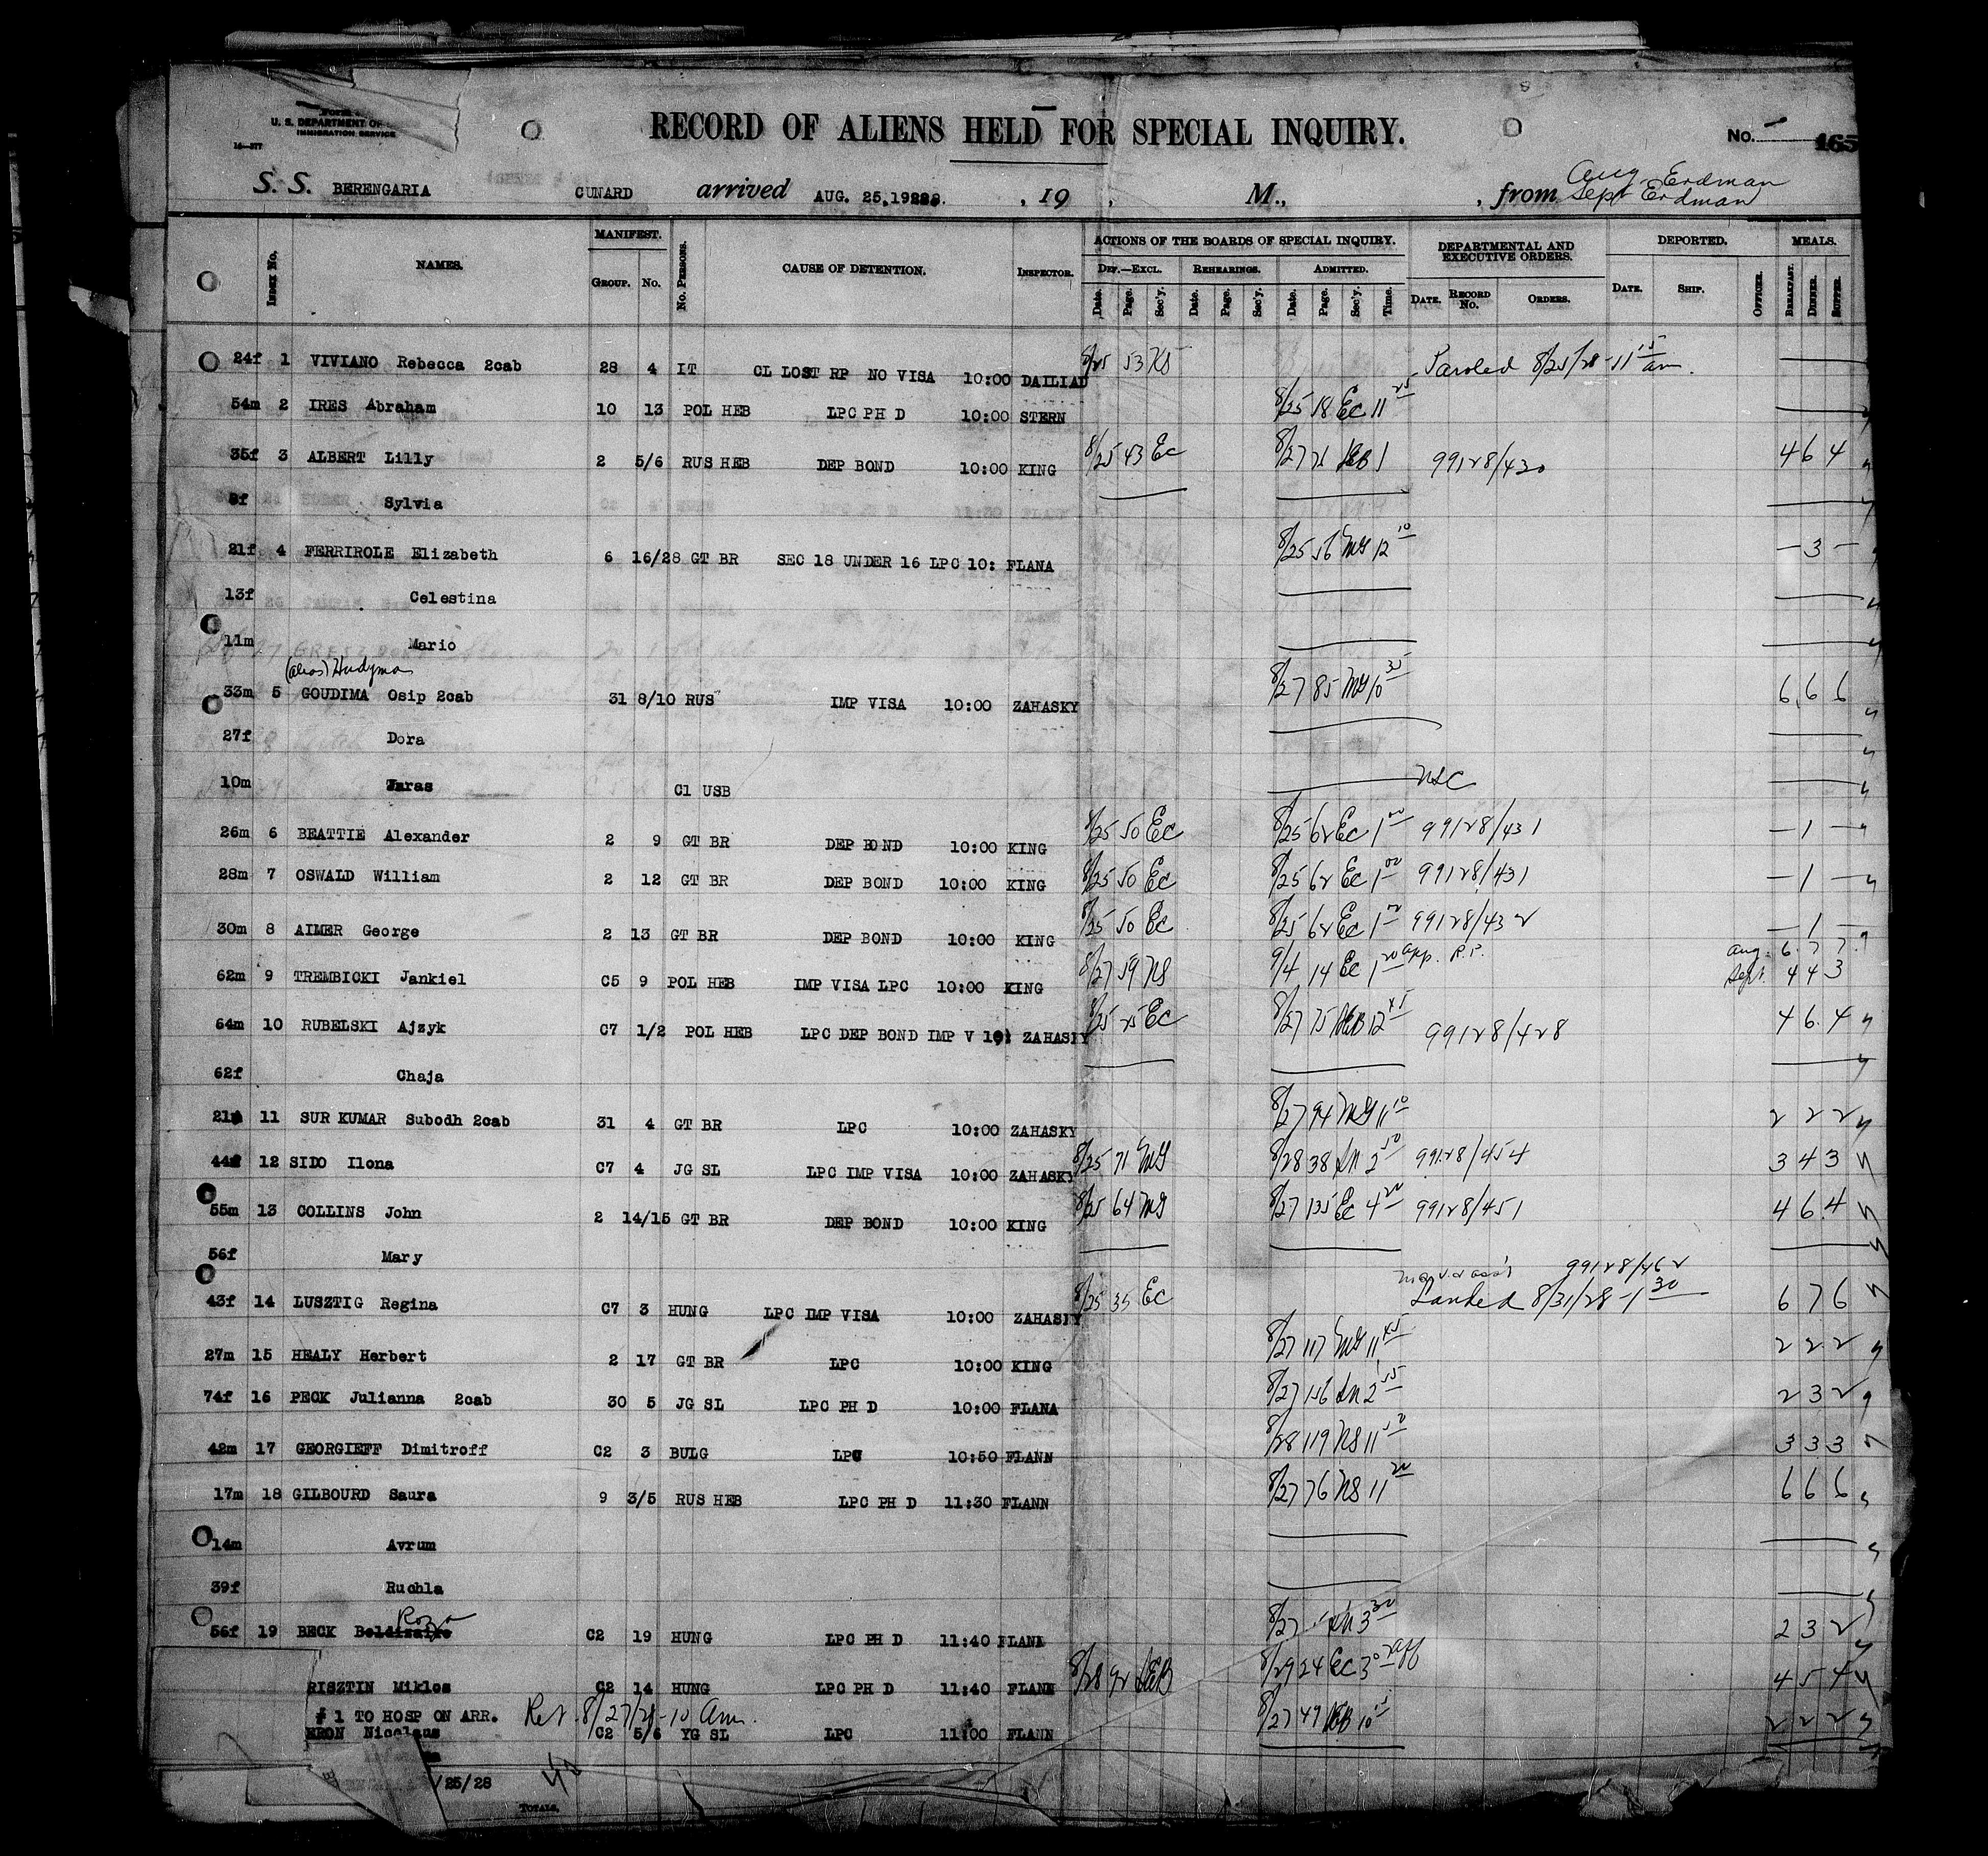 U. S. DEPARTMENT OF
IMMIGRATION SERVICE
16—377
RECORD OF ALIENS HELD FOR SPECIAL INQUIRY.
No. 165
S. S. BERENGARIA CUNARD arrived AUG. 25, 1928. , 19 , M., , from Aug Erdman
Sept Erdman
INDEX NO. NAMES. MANIFEST. GROUP. NO. NO. PERSONS. CAUSE OF DETENTION. INSPECTOR. ACTIONS OF THE BOARDS OF SPECIAL INQUIRY. DEPARTMENTAL AND EXECUTIVE ORDERS. DEPORTED. MEALS.
DEF.—EXCL. REHEARINGS. ADMITTED.
Date. Page. Sec'y. Date. Page. Sec'y. Date. Page. Sec'y. Time. DATE. RECORD NO. ORDERS. DATE. SHIP. OFFICER. BREAKFAST. DINNER. SUPPER.
24f 1 VIVIANO Rebecca 2cab 28 4 IT CL LOST RP NO VISA 10:00 DAILIAD 8/25 53 NS Paroled 8/25/28 - 11 15 am.
54m 2 IRES Abraham 10 13 POL HEB LPC PH D 10:00 STERN 8/25 18 EC 11 25
35f 3 ALBERT Lilly 2 5/6 RUS HEB DEP BOND 10:00 KING 8/25 43 EC 8/27 71 1 99128/430 4 6 4
8f Sylvia
21f 4 FERRIROLE Elizabeth 6 16/28 GT BR SEC 18 UNDER 16 LPC 10: FLANA 8/25 56 MG 12 10 - 3 -
13f Celestina
11m Mario
(alias) Hudyma
33m 5 GOUDIMA Osip 2cab 31 8/10 RUS IMP VISA 10:00 ZAHASKY 8/27 85 MG 10 35 6 6 6
27f Dora
10m Taras C1 USB NSC
26m 6 BEATTIE Alexander 2 9 GT BR DEP BOND 10:00 KING 8/25 50 EC 8/25 62 EC 1 00 99128/431 - 1 -
28m 7 OSWALD William 2 12 GT BR DEP BOND 10:00 KING 8/25 50 EC 8/25 62 EC 1 00 99128/431 - 1 -
30m 8 AIMER George 2 13 GT BR DEP BOND 10:00 KING 8/25 50 EC 8/25 62 EC 1 00 99128/432 - 1 -
62m 9 TREMBICKI Jankiel C5 9 POL HEB IMP VISA LPC 10:00 KING 8/27 59 NS 9/4 14 EC 1 20 app. Aug. 6 7 7
Sept. 4 4 3
64m 10 RUBELSKI Ajzyk C7 1/2 POL HEB LPC DEP BOND IMP V 10: ZAHASKY 8/25 25 EC 8/27 75 12 45 99128/428 4 6 4
62f Chaja
21m 11 SUR KUMAR Subodh 2cab 31 4 GT BR LPC 10:00 ZAHASKY 8/27 94 MG 11 10 2 2 2
44f 12 SIDO Ilona C7 4 JG SL LPC IMP VISA 10:00 ZAHASKY 8/25 71 MG 8/28 38 2 50 99128/454 3 4 3
55m 13 COLLINS John 2 14/15 GT BR DEP BOND 10:00 KING 8/25 64 MG 8/27 135 EC 4 20 99128/451 4 6 4
56f Mary
99128/462
43f 14 LUSZTIG Regina C7 3 HUNG LPC IMP VISA 10:00 ZAHASKY 8/25 35 EC Landed 8/31/28 - 1 30 6 7 6
27m 15 HEALY Herbert 2 17 GT BR LPC 10:00 KING 8/27 117 MG 11 45 2 2 2
74f 16 PECK Julianna 2cab 30 5 JG SL LPC PH D 10:00 FLANA 8/27 156 2 55 2 3 2
42m 17 GEORGIEFF Dimitroff C2 3 BULG LPC 10:50 FLANN 8/28 119 NS 11 3 3 3
17m 18 GILBOURD Saura 9 3/5 RUS HEB LPC PH D 11:30 FLANN 8/27 76 NS 11 20 6 6 6
14m Avrum
39f Ruchla
Roza
56f 19 BECK Beldizaire C2 19 HUNG LPC PH D 11:40 FLANN 8/27 3 30 2 3 2
RISZTIN Miklos C2 14 HUNG LPC PH D 11:40 FLANN 8/28 92 8/29 24 EC 3 4 5 4
# 1 TO HOSP ON ARR. Ret 8/27/28 - 10 am.
KRON Nicolaus C2 5/6 YG SL LPC 11:00 FLANN 8/27 49 10 15 2 2 2
/25/28
TOTALS.